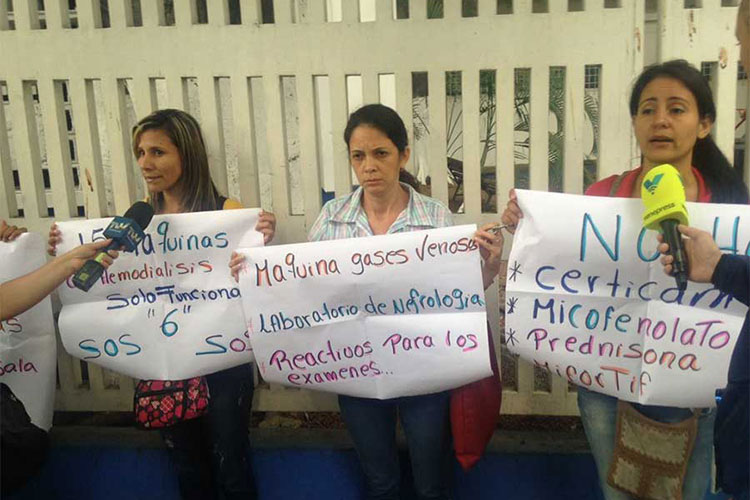 Sala
15 Maquinas
Hemodialisis
Solo Funciona
"6"
SOS SOS
Maquina gases venosa
LAboratorio de Nefrología
Reactivos Para los
exámenes...
No
* Certican
* Micofenolato
* Prednisona
Micortif